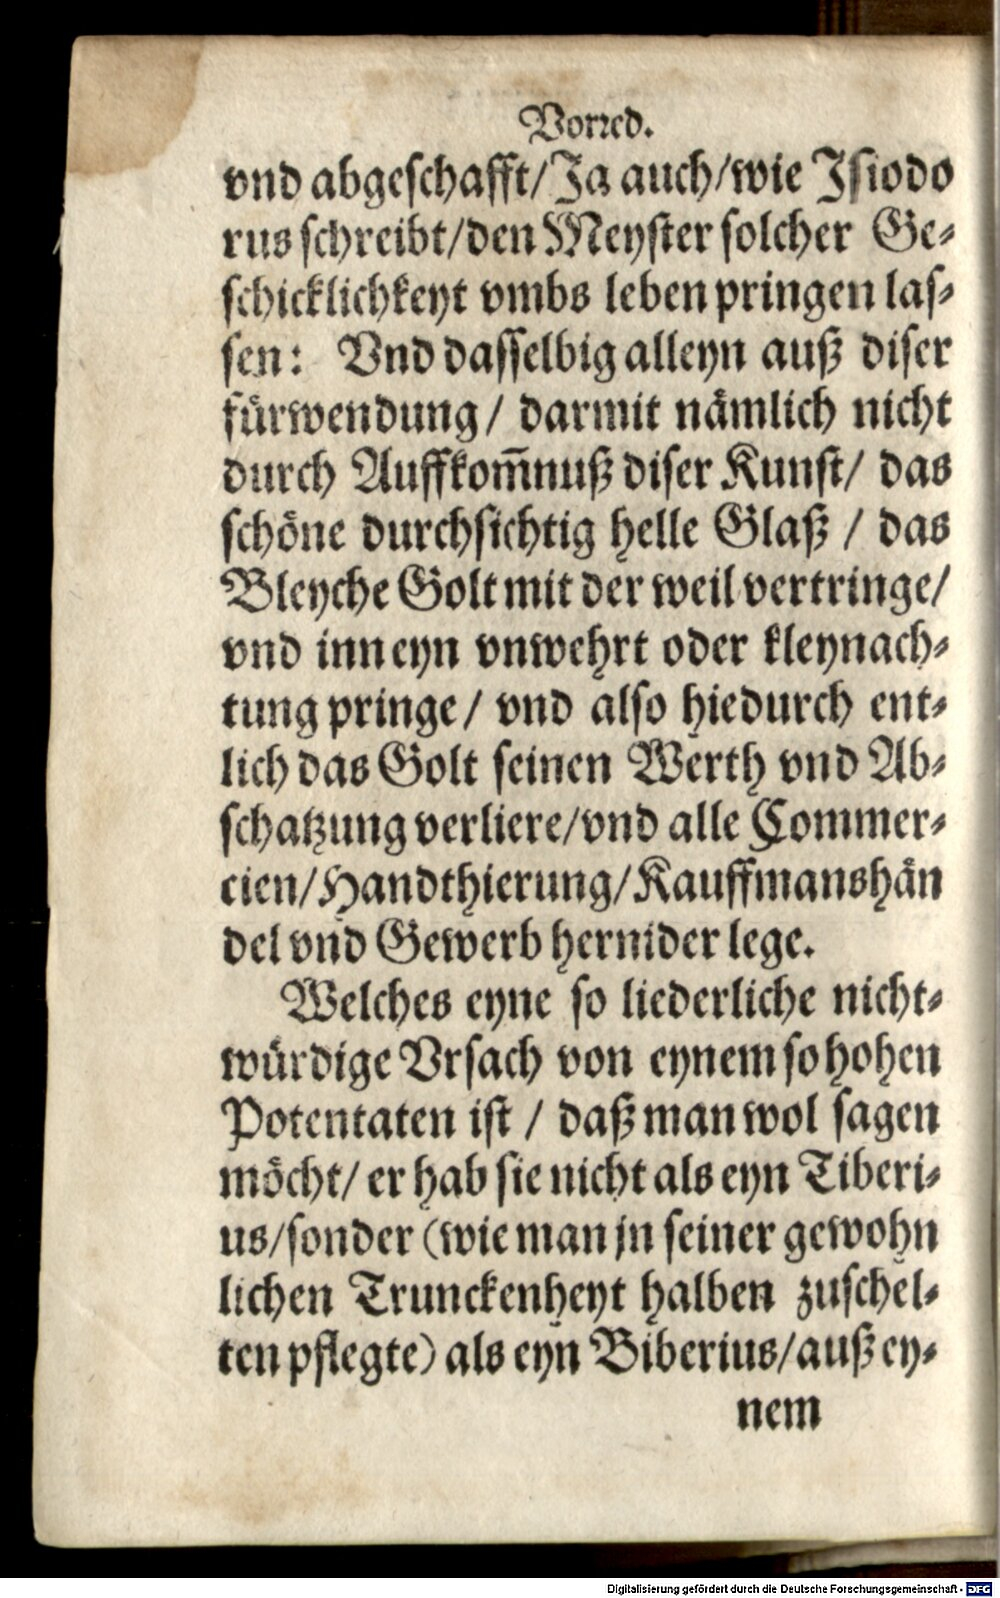 Vorred.
vnd abgeschafft/Ja auch/wie Isiodo
rus schreibt/den Meyster solcher Ge⸗
schicklichkeyt vmbs leben pringen las⸗
sen: Vnd dasselbig alleyn auß diser
fürwendung/ darmit nämlich nicht
durch Auffkom̃nuß diser Kunst/ das
schöne durchsichtig helle Glaß / das
Bleyche Golt mit der weil vertringe/
vnd inn eyn vnwehrt oder kleynach⸗
tung pringe/ vnd also hiedurch ent⸗
lich das Golt seinen Werth vnd Ab⸗
schatzung verliere/vnd alle Commer⸗
cien/Handthierung/Kauffmanshän
del vnd Gewerb hernider lege.
Welches eyne so liederliche nicht⸗
würdige Vrsach von eynem so hohen
Potentaten ist / daß man wol sagen
möcht/ er hab sie nicht als eyn Tiberi⸗
us/sonder (wie man jn seiner gewohn
lichen Trunckenheyt halben zuschel⸗
ten pflegte) als eyn Biberius/auß ey⸗
nem
Digitalisierung gefördert durch die Deutsche Forschungsgemeinschaft - DFG